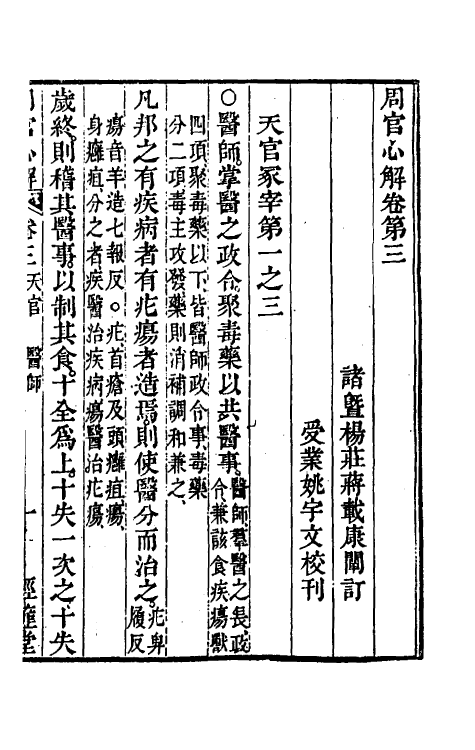 周官心解卷第三
諸暨楊莊蔣載康闡訂
受業姚宇文校刊
天官冢宰第一之三
○醫師掌醫之政令聚毒藥以共醫事醫師羣醫之長政
令兼該食疾瘍獸
四項聚毒藥以下皆醫師政令事毒藥
分二項毒主攻發藥則消補調和兼之
凡邦之有疾病者有疕瘍者造焉則使醫分而治之疕卑
履反
瘍音羊造七報反○疕首瘡及頭癰疽瘍
身癰疽分之者疾醫治疾病瘍醫治疕瘍
歲終則稽其醫事以制其食十全爲上十失一次之十失
周官心解 卷三 天官 醫師 一